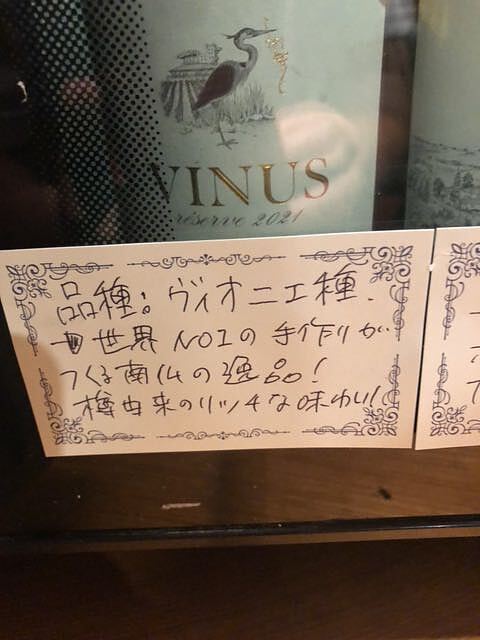 VINUS
réserve 2021
品種：ヴィオニエ種.
世界NO1の手作りが
つくる南仏の逸品！
樽由来のリッチな味わい！